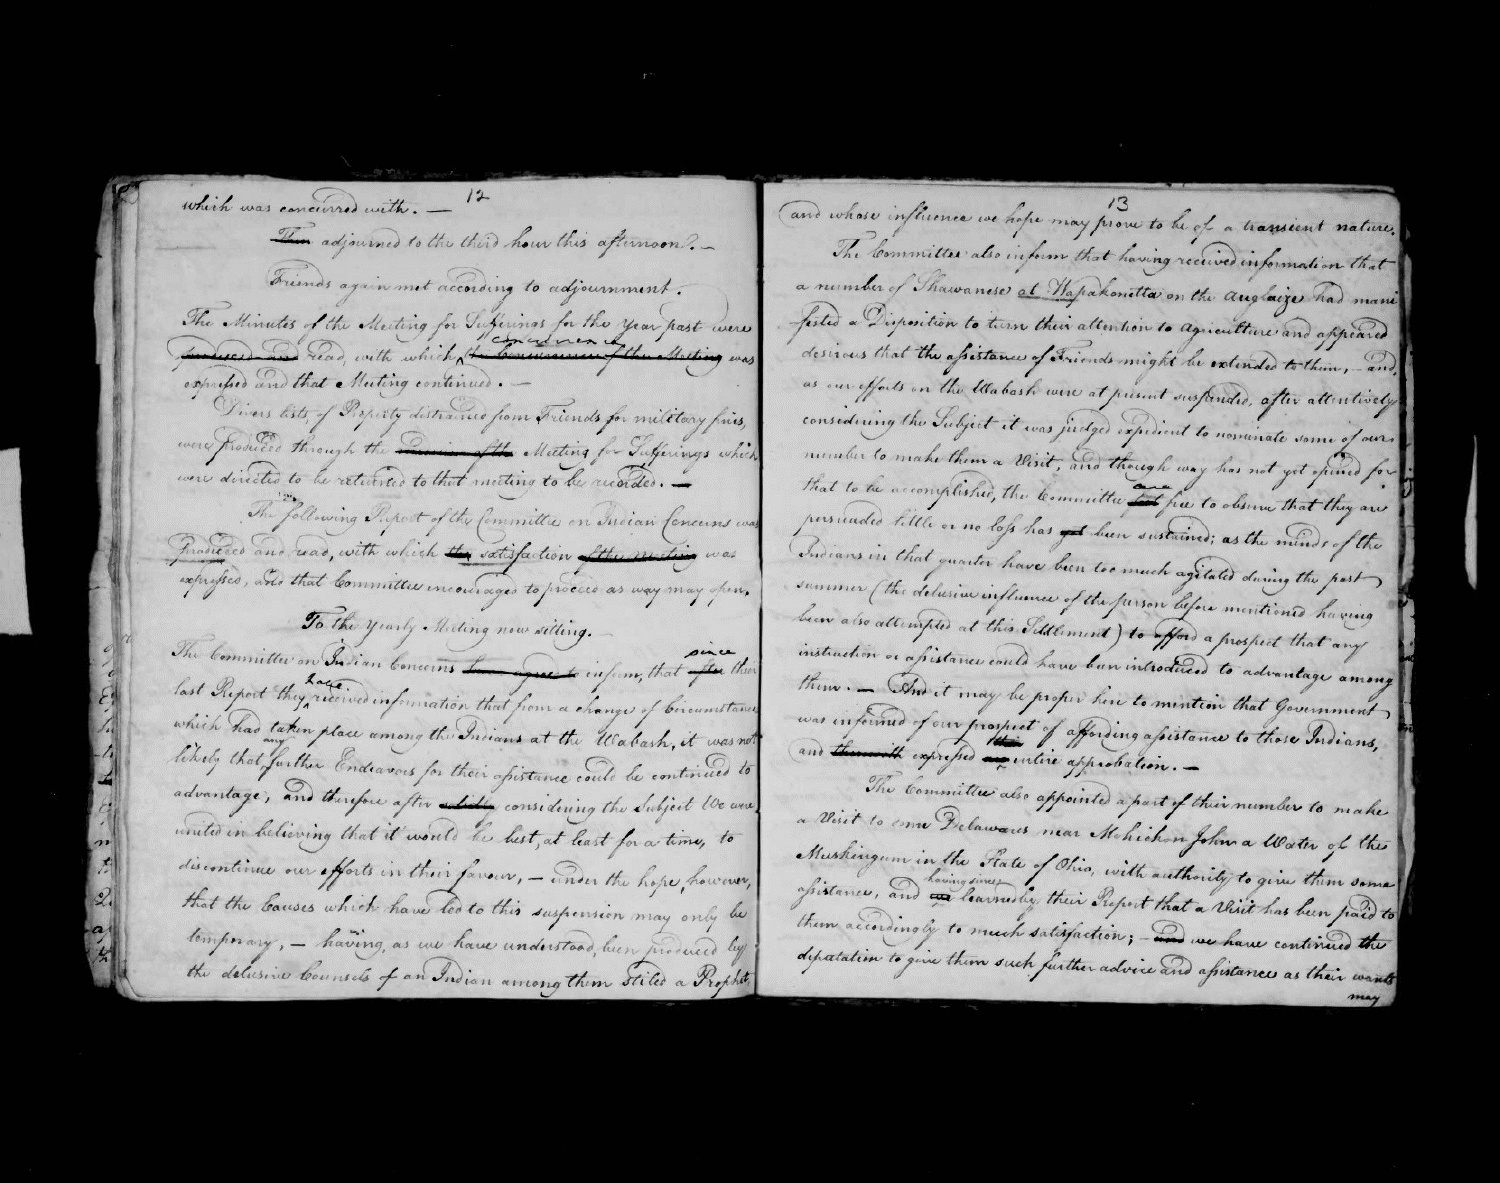 12
which was concurred with. —
Then adjourned to the third hour this afternoon. —
Friends again met according to adjournment.
The Minutes of the Meeting for Sufferings for the Year past were
concurrence
produced and read, with which the concurrence of the Meeting was
expressed and that Meeting continued. —
Divers lists, of Property distrained from Friends for military fines,
were produced through the Meeting for Sufferings which
were directed to be returned to that meeting to be recorded. —
The following Report of the Committee on Indian Concerns was
produced and read, with which the satisfaction of the meeting was
expressed, and that Committee encouraged to proceed as way may open.
To the Yearly Meeting now sitting. —
since
The Committee on Indian Concerns have agreed to inform, that after their
have
last Report they received information that from a change of Circumstances
which had taken place among the Indians at the Wabash, it was not
any
likely that further Endeavors for their assistance could be continued to
advantage, and therefore after solidly considering the Subject We were
united in believing that it would be best, at least for a time, to
discontinue our efforts in their favour, — under the hope, however,
that the Causes which have led to this suspension may only be
temporary, — having, as we have understood, been produced by
the delusive Counsels of an Indian among them stiled a Prophet,
13
and whose influence we hope may prove to be of a transient nature.
The Committee also inform that having received information that
a number of Shawanese at Wapakonetta on the Auglaize had mani
fested a Disposition to turn their attention to Agriculture and appeared
desirous that the assistance of Friends might be extended to them, — and,
as our efforts on the Wabash were at present suspended, after attentively
considering the Subject it was judged expedient to nominate some of our
number to make them a Visit, and though way has not yet opened for
are
that to be accomplished, the Committee feel free to observe that they are
persuaded little or no loss has yet been sustained; as the minds of the
Indians in that quarter have been too much agitated during the past
summer (the delusive influence of the person before mentioned having
been also attempted at this Settlement) to afford a prospect that any
instruction or assistance could have been introduced to advantage among
them. — And it may be proper here to mention that Government
was informed of our prospect of affording assistance to those Indians,
and therewith expressed entire approbation. —
The Committee also appointed a part of their number to make
a Visit to some Delawares near Mohichon John a Water of the
Muskingum in the State of Ohio, with authority to give them some
having since
assistance, and learned by their Report that a Visit has been paid to
them accordingly to much satisfaction; — and we have continued the
deputation to give them such further advice and assistance as their wants
may